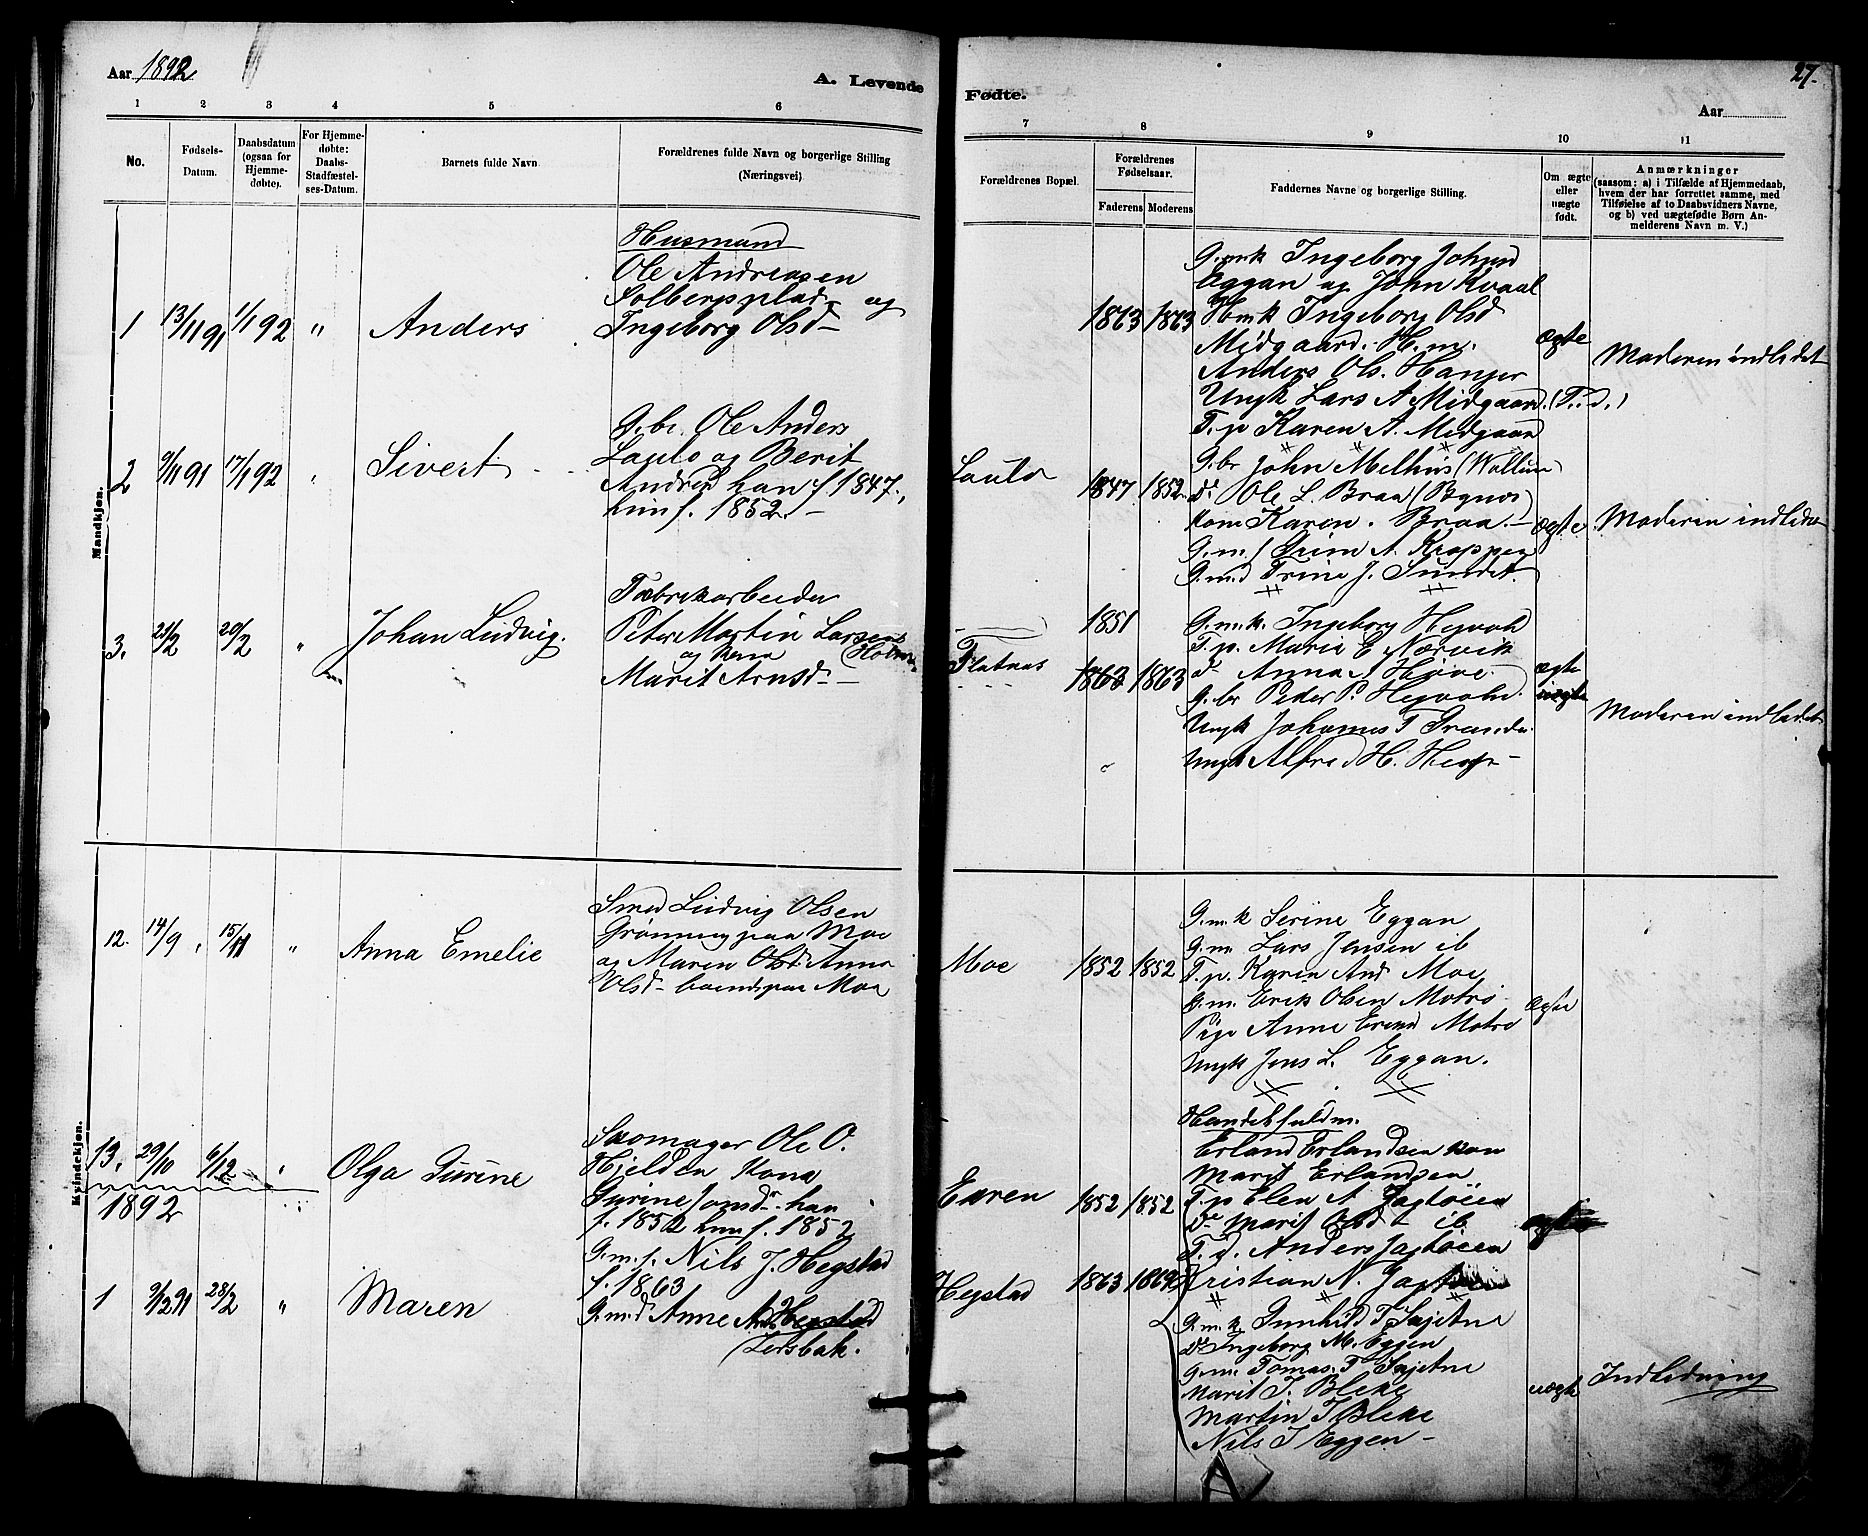 Aar 1892
A. Levende
Fødte.
Aar
27.
1 2 3 4 5 6 7 8 9 10 11
No.
Fødsels-
Datum.
Daabsdatum
(ogsaa for
Hjemme-
døbte).
For Hjemme-
døbte:
Daabs-
Stadfæstel-
ses-Datum.
Barnets fulde Navn.
Forældrenes fulde Navn og borgerlige Stilling
(Næringsvei)
Forældrenes Bopæl.
Forældrenes
Fødselsaar.
Faderens Moderens
Faddernes Navne og borgerlige Stilling.
Om ægte
eller
uægte
født.
Anmærkninger
(saasom: a) i Tilfælde af Hjemmedaab,
hvem der har forrettet samme, med
Tilføielse af to Daabsvidners Navne,
og b) ved uægtefødte Børn An-
melderens Navn m. V.)
Mandkjøn.
1 13/11 91 1/1 92 " Anders
Husmand
Ole Andreasen
Solbergsplads og
Ingeborg Olsd
1863 1863
G.mk Ingeborg Johnsd
Eggan og John Kvaal
Hmk Ingeborg Olsd
Midgaard. H.m.
Anders Ols. Hanger
Ungk Lars A Midgaard. (T.d.)
T.p Karen A. Midgaard
ægte
Moderen indledet
2 9/11 91 17/1 92 " Sivert
G.br. Ole Anders
Laulo og Berit
Andrsd han f 1847.,
hun f. 1852.
Laulo
1847 1852.
G.br John Melhus
D° Ole L. Braa (Bynes)
Kone Karen. Braa.
G.m.f A. Kroppen
G.m.d Trine J. Sundet.
ægte
Moderen indledet
3. 20/2 " Johan Ludvig.
Fabrikarbeider
Peter Martin Larsen
og Kona
Marit Arnsd
Flatnas
1851
1863 1863
G.m.k. Ingeborg
T.p. Marie E Nærvik
D° Anna Høve
G.br Peder P.
Ungk Johannes T
Ungk Alfred H.
ægte
uægte
Moderen indledet
Kvindekjøn.
12. 14/9 15/11 " Anna Emelie
Smed Ludvig Olsen
Grønning paa Moe
og Maren Olsd. Anna
Olsd boende paa Moe
Moe
1852 1852
G.m.k Serine Eggan
G.m. Lars Jensen ib
T.p. Karen And Moe
G.m. Erik Olsen Motrø
Pige Anne Eriksd Motrø
Ungk Jens L. Eggan.
ægte
13. 29/10 6/12 " Olga Turine
Skomager Ole O.
Hjelden Kona
Turine Jonsdr. han
f. 1852 hun f. 1852
Euren
1852 1852
Handelsfuldm.
Erland Erlandsen kone
Marit Erlandsen
T.p Elen A. Jagtøien
D° Marit Olsd ib
T.d. Anders Jagtøien
Kristian N. Jagtøien
ægte
1892
1 9/12 91 28/2 " Maren
G.m.f. Nils J. Hegstad
f. 1863
G.m.d Anne And Hegstad
Lersbak.
Hegstad
1863 1869
G.m.k. Gunhild T Sajetne
D° Ingeborg M. Eggen
G.m. Tomas. T Sajetne
Marit J. Bleke
Martin J Bleke
Nils J Eggen
uægte
Indledning